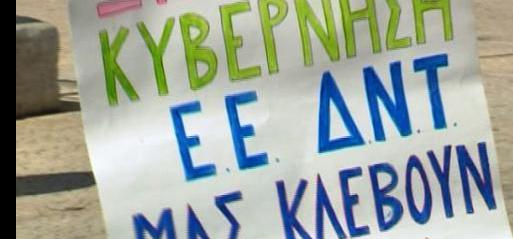 ΚΥΒΕΡΝΗΣΗ
Ε.Ε. Δ.Ν.Τ.
ΜΑΣ ΚΛΕΒΟΥΝ